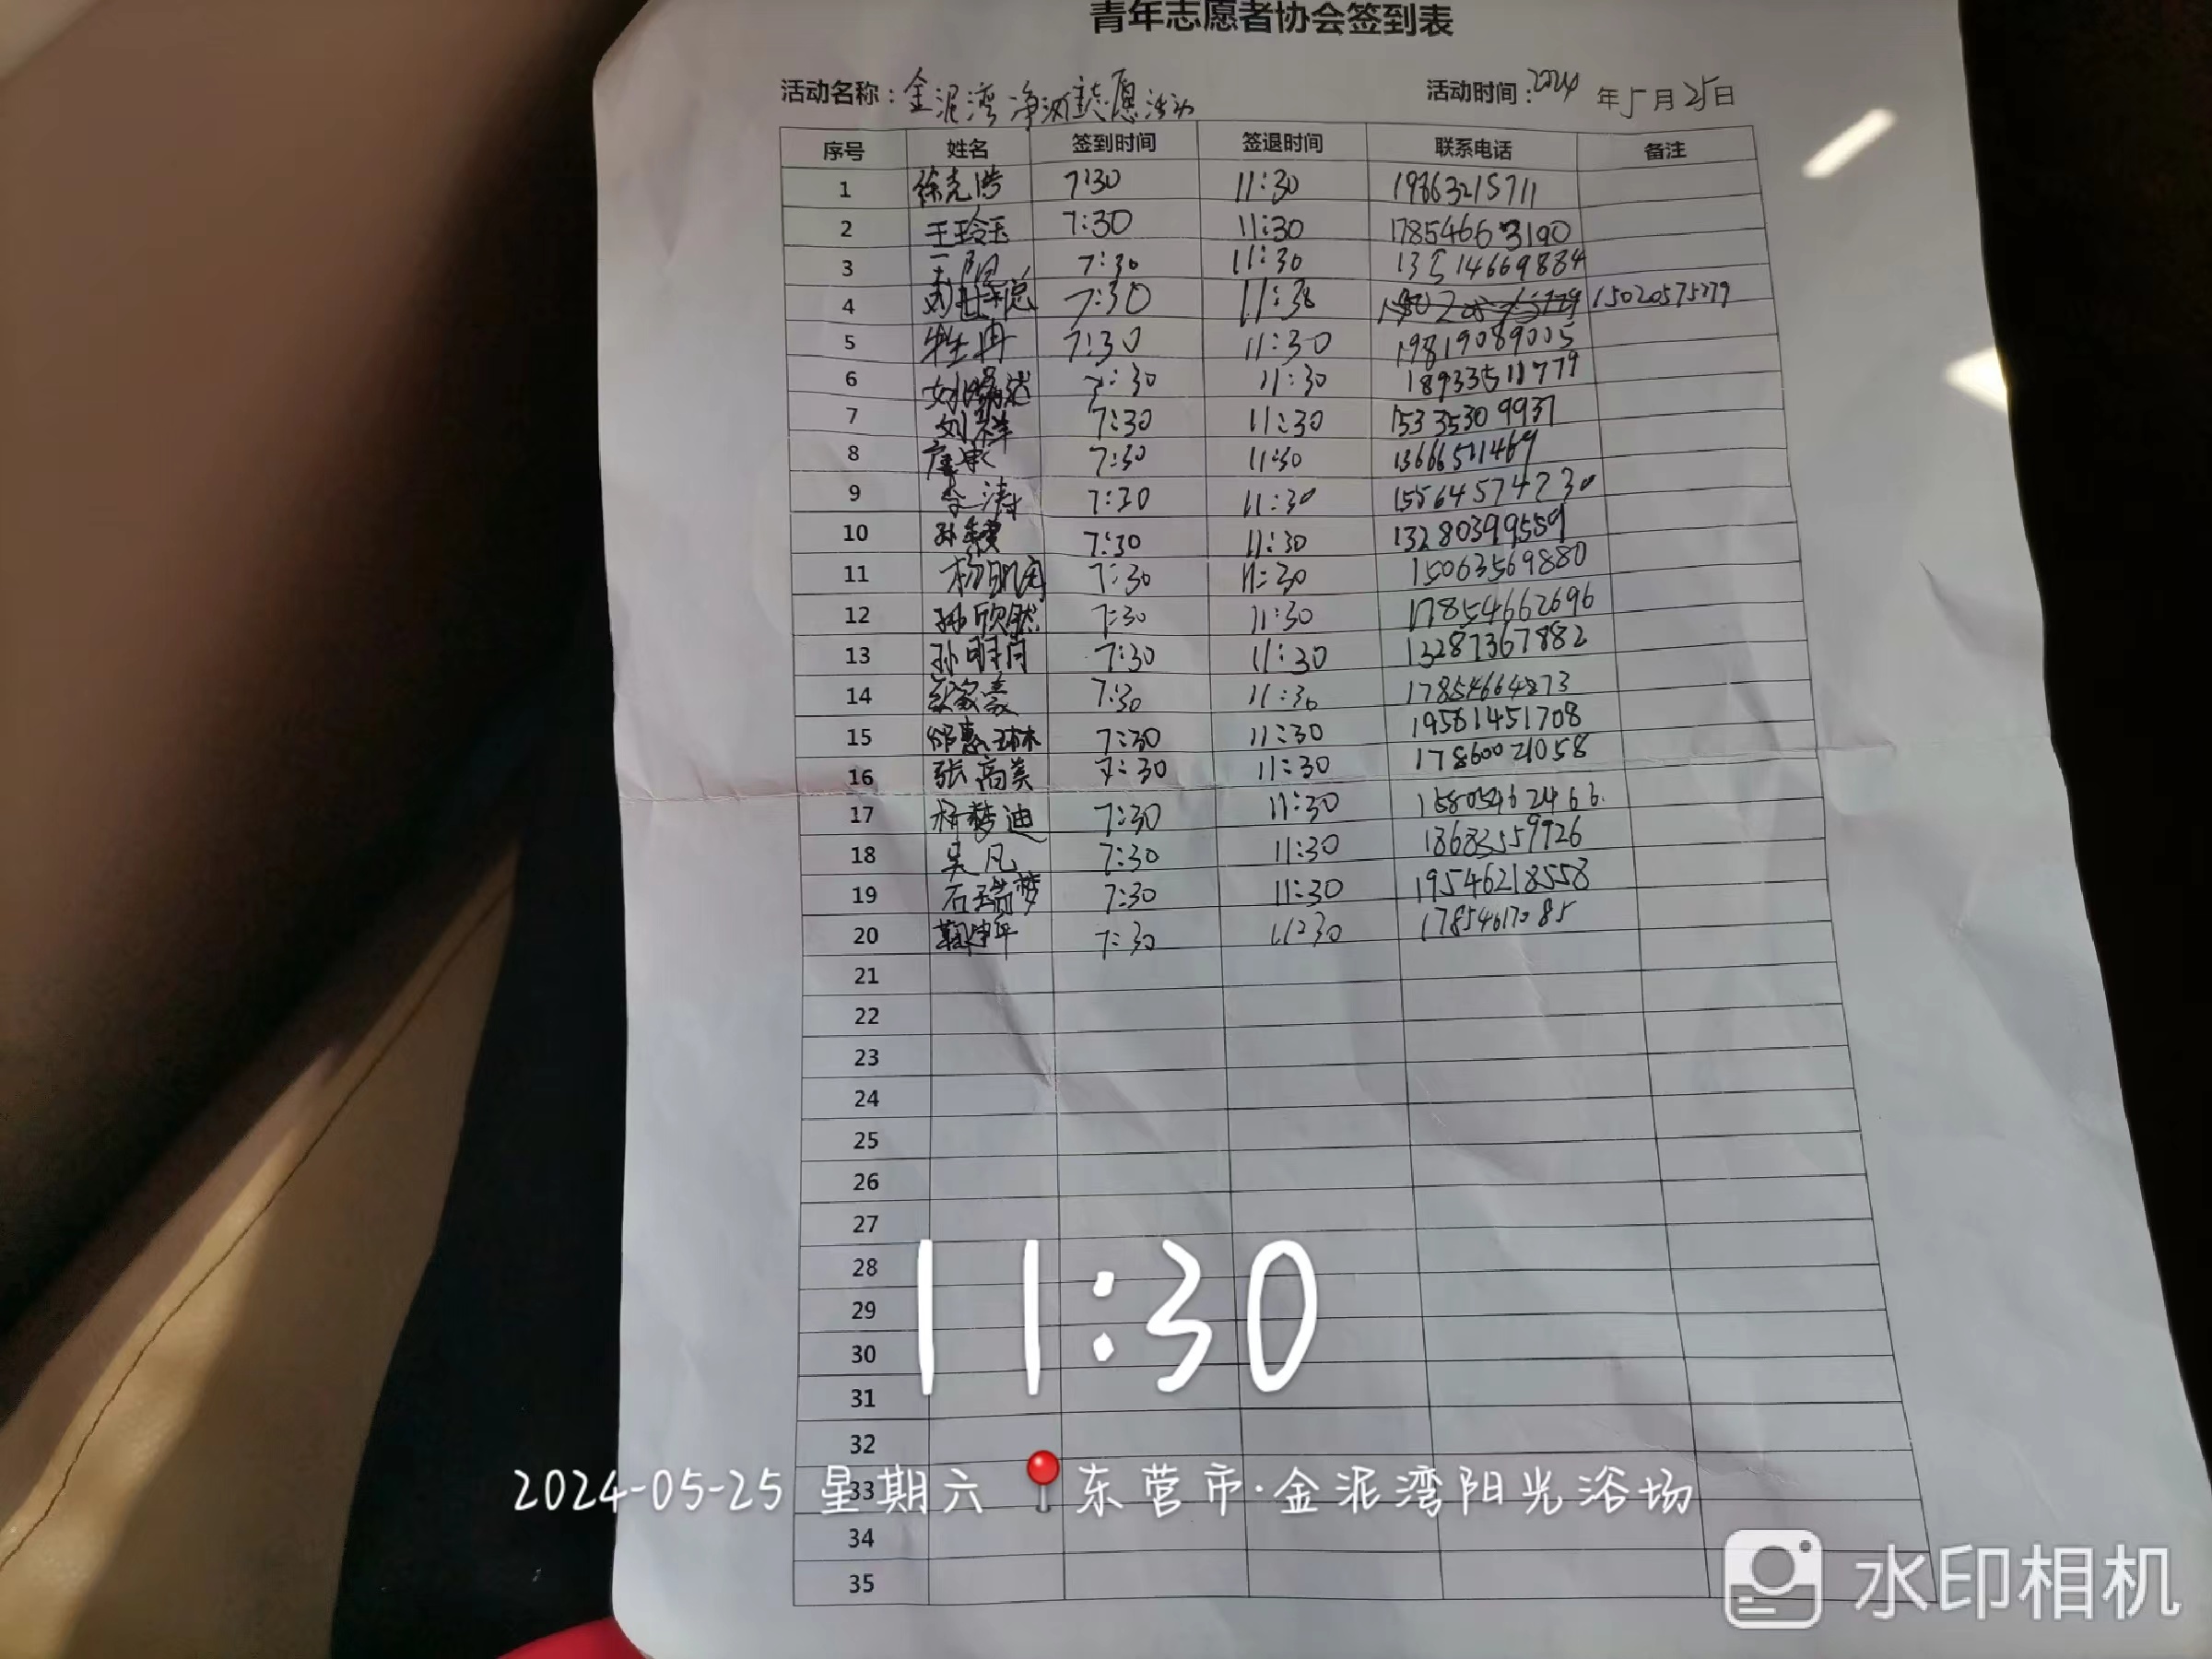 青年志愿者协会签到表
活动名称：金泥湾净滩志愿活动 活动时间：2024年5月25日
序号 姓名 签到时间 签退时间 联系电话 备注
1 徐克浩 7:30 11:30 19863215711
2 王玲玉 7:30 11:30 17854663190
3 7:30 11:30 13514669884
4 7:30 11:30 15020575279
5 7:30 11:30 19819089005
6 7:30 11:30 18933511779
7 刘祥 7:30 11:30 15335309937
8 7:30 11:30
9 李涛 7:30 11:30 15564574230
10 7:30 11:30 13280399559
11 7:30 11:30 15063569880
12 孙欣然 7:30 11:30 17854662696
13 孙明月 7:30 11:30 13287367882
14 7:30 11:30
15 7:30 11:30 19561451708
16 张高美 7:30 11:30 17860021058
17 杨梦迪 7:30 11:30
18 吴凡 7:30 11:30
19 石瑞梦 7:30 11:30 19546218558
20 7:30 11:30
21
22
23
24
25
26
27
28
29
30
31
32
33
34
35
11:30
2024-05-25 星期六 东营市·金泥湾阳光浴场
水印相机